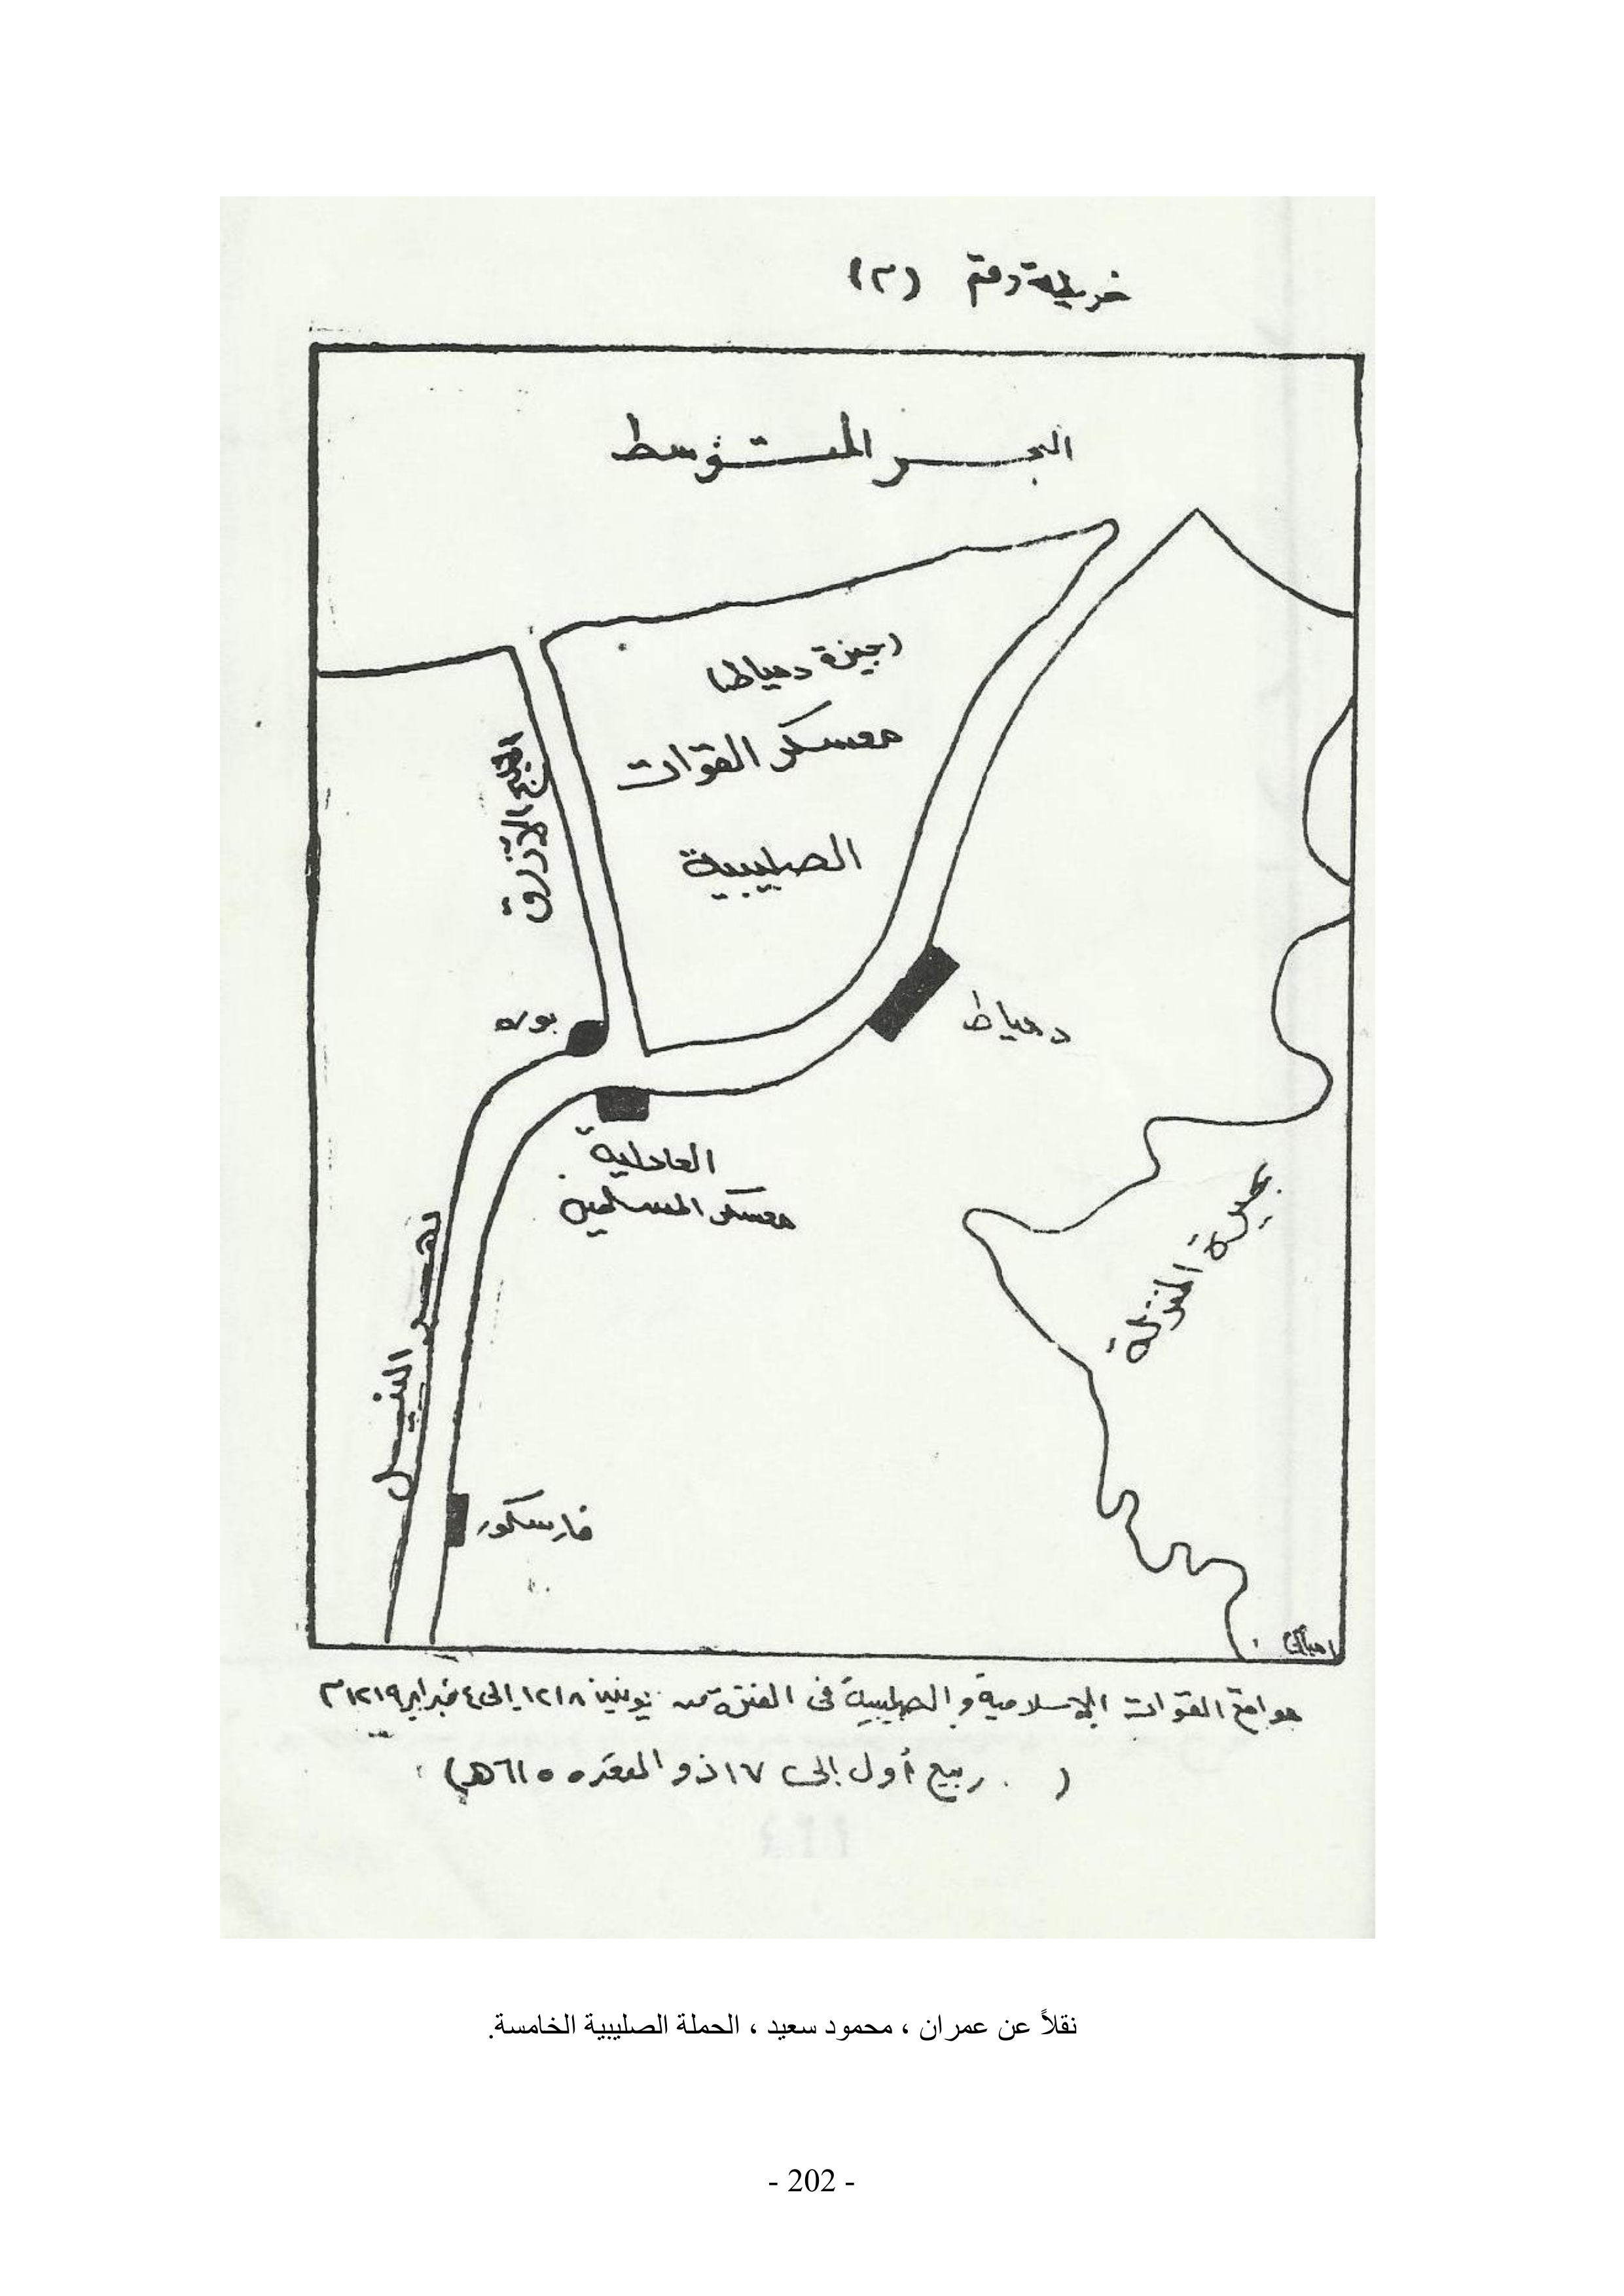 خريطة رقم (٣)
البحر المتوسط
(جيزة دمياط)
معسكر القوات
الصليبية
الخليج الأزرق
بوره
دمياط
العادلية
معسكر المسلمين
بحيرة المنزلة
نهر النيل
فارسكور
مواقع القوات الإسلامية والصليبية فى الفترة من يونيه ١٢١٨ إلى ٤ فبراير ١٢١٩م
( ربيع أول إلى ١٧ ذو القعده ٦١٥هـ)
نقلاً عن عمران ، محمود سعيد ، الحملة الصليبية الخامسة.
- 202 -